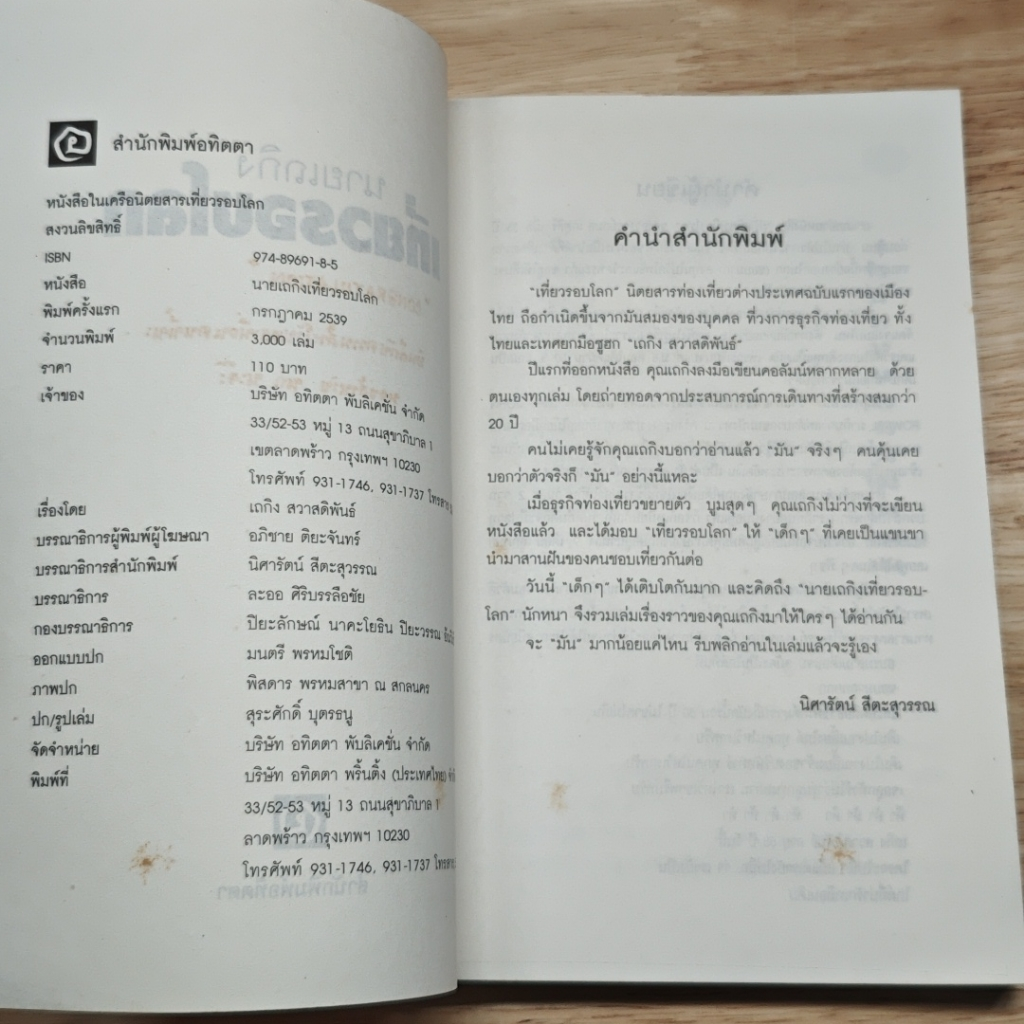 สำนักพิมพ์อทิตตา
หนังสือในเครือนิตยสารเที่ยวรอบโลก
สงวนลิขสิทธิ์
ISBN 974-89691-8-5
หนังสือ นายเถกิงเที่ยวรอบโลก
พิมพ์ครั้งแรก กรกฎาคม 2539
จำนวนพิมพ์ 3,000 เล่ม
ราคา 110 บาท
เจ้าของ บริษัท อทิตตา พับลิเคชั่น จำกัด
33/52-53 หมู่ 13 ถนนสุขาภิบาล 1
เขตลาดพร้าว กรุงเทพฯ 10230
โทรศัพท์ 931-1746, 931-1737
เรื่องโดย เถกิง สวาสดิพันธ์
บรรณาธิการผู้พิมพ์ผู้โฆษณา อภิชาย ติยะจันทร์
บรรณาธิการสำนักพิมพ์ นิศารัตน์ สีตะสุวรรณ
บรรณาธิการ ละออ ศิริบรรลือชัย
กองบรรณาธิการ ปิยะลักษณ์ นาคะโยธิน ปิยะวรรณ
ออกแบบปก มนตรี พรหมโชติ
ภาพปก พิสดาร พรหมสาขา ณ สกลนคร
ปก/รูปเล่ม สุระศักดิ์ บุตรธนู
จัดจำหน่าย บริษัท อทิตตา พับลิเคชั่น จำกัด
พิมพ์ที่ บริษัท อทิตตา พริ้นติ้ง (ประเทศไทย)
33/52-53 หมู่ 13 ถนนสุขาภิบาล 1
ลาดพร้าว กรุงเทพฯ 10230
โทรศัพท์ 931-1746, 931-1737
คำนำสำนักพิมพ์
"เที่ยวรอบโลก" นิตยสารท่องเที่ยวต่างประเทศฉบับแรกของเมือง
ไทย ถือกำเนิดขึ้นจากมันสมองของบุคคล ที่วงการธุรกิจท่องเที่ยว ทั้ง
ไทยและเทศยกมือซูฮก "เถกิง สวาสดิพันธ์"
ปีแรกที่ออกหนังสือ คุณเถกิงลงมือเขียนคอลัมน์หลากหลาย ด้วย
ตนเองทุกเล่ม โดยถ่ายทอดจากประสบการณ์การเดินทางที่สร้างสมกว่า
20 ปี
คนไม่เคยรู้จักคุณเถกิงบอกว่าอ่านแล้ว "มัน" จริงๆ คนคุ้นเคย
บอกว่าตัวจริงก็ "มัน" อย่างนี้แหละ
เมื่อธุรกิจท่องเที่ยวขยายตัว บูมสุดๆ คุณเถกิงไม่ว่างที่จะเขียน
หนังสือแล้ว และได้มอบ "เที่ยวรอบโลก" ให้ "เด็กๆ" ที่เคยเป็นแขนขา
นำมาสานฝันของคนชอบเที่ยวกันต่อ
วันนี้ "เด็กๆ" ได้เติบโตกันมาก และคิดถึง "นายเถกิงเที่ยวรอบ-
โลก" นักหนา จึงรวมเล่มเรื่องราวของคุณเถกิงมาให้ใครๆ ได้อ่านกัน
จะ "มัน" มากน้อยแค่ไหน รีบพลิกอ่านในเล่มแล้วจะรู้เอง
นิศารัตน์ สีตะสุวรรณ